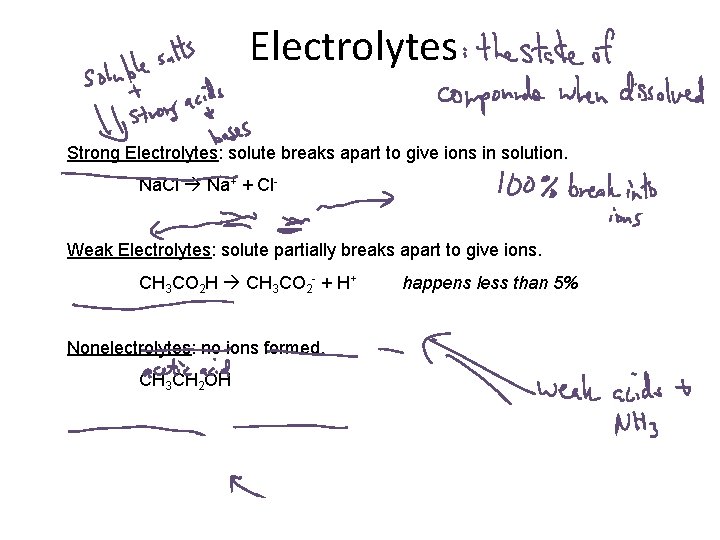 Electrolytes : the state of
compounds when dissolved
Soluble salts
+
strong acids
+
bases
Strong Electrolytes: solute breaks apart to give ions in solution.
Na.Cl → Na+ + Cl-
100% break into
ions
Weak Electrolytes: solute partially breaks apart to give ions.
CH3CO2H → CH3CO2- + H+ happens less than 5%
Nonelectrolytes: no ions formed.
acetic acid
CH3CH2OH
weak acids +
NH3